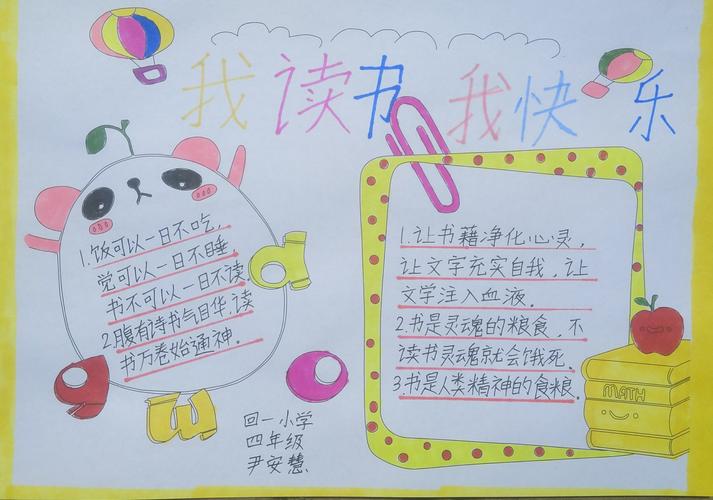 我读书 我快乐
1.饭可以一日不吃,
觉可以一日不睡,
书不可以一日不读.
2腹有诗书气自华.读
书万卷始通神.
1.让书籍净化心灵,
让文字充实自我,让
文学注入血液.
2.书是灵魂的粮食,不
读书灵魂就会饿死.
3书是人类精神的食粮.
MATH
回一小学
四年级
尹安慧